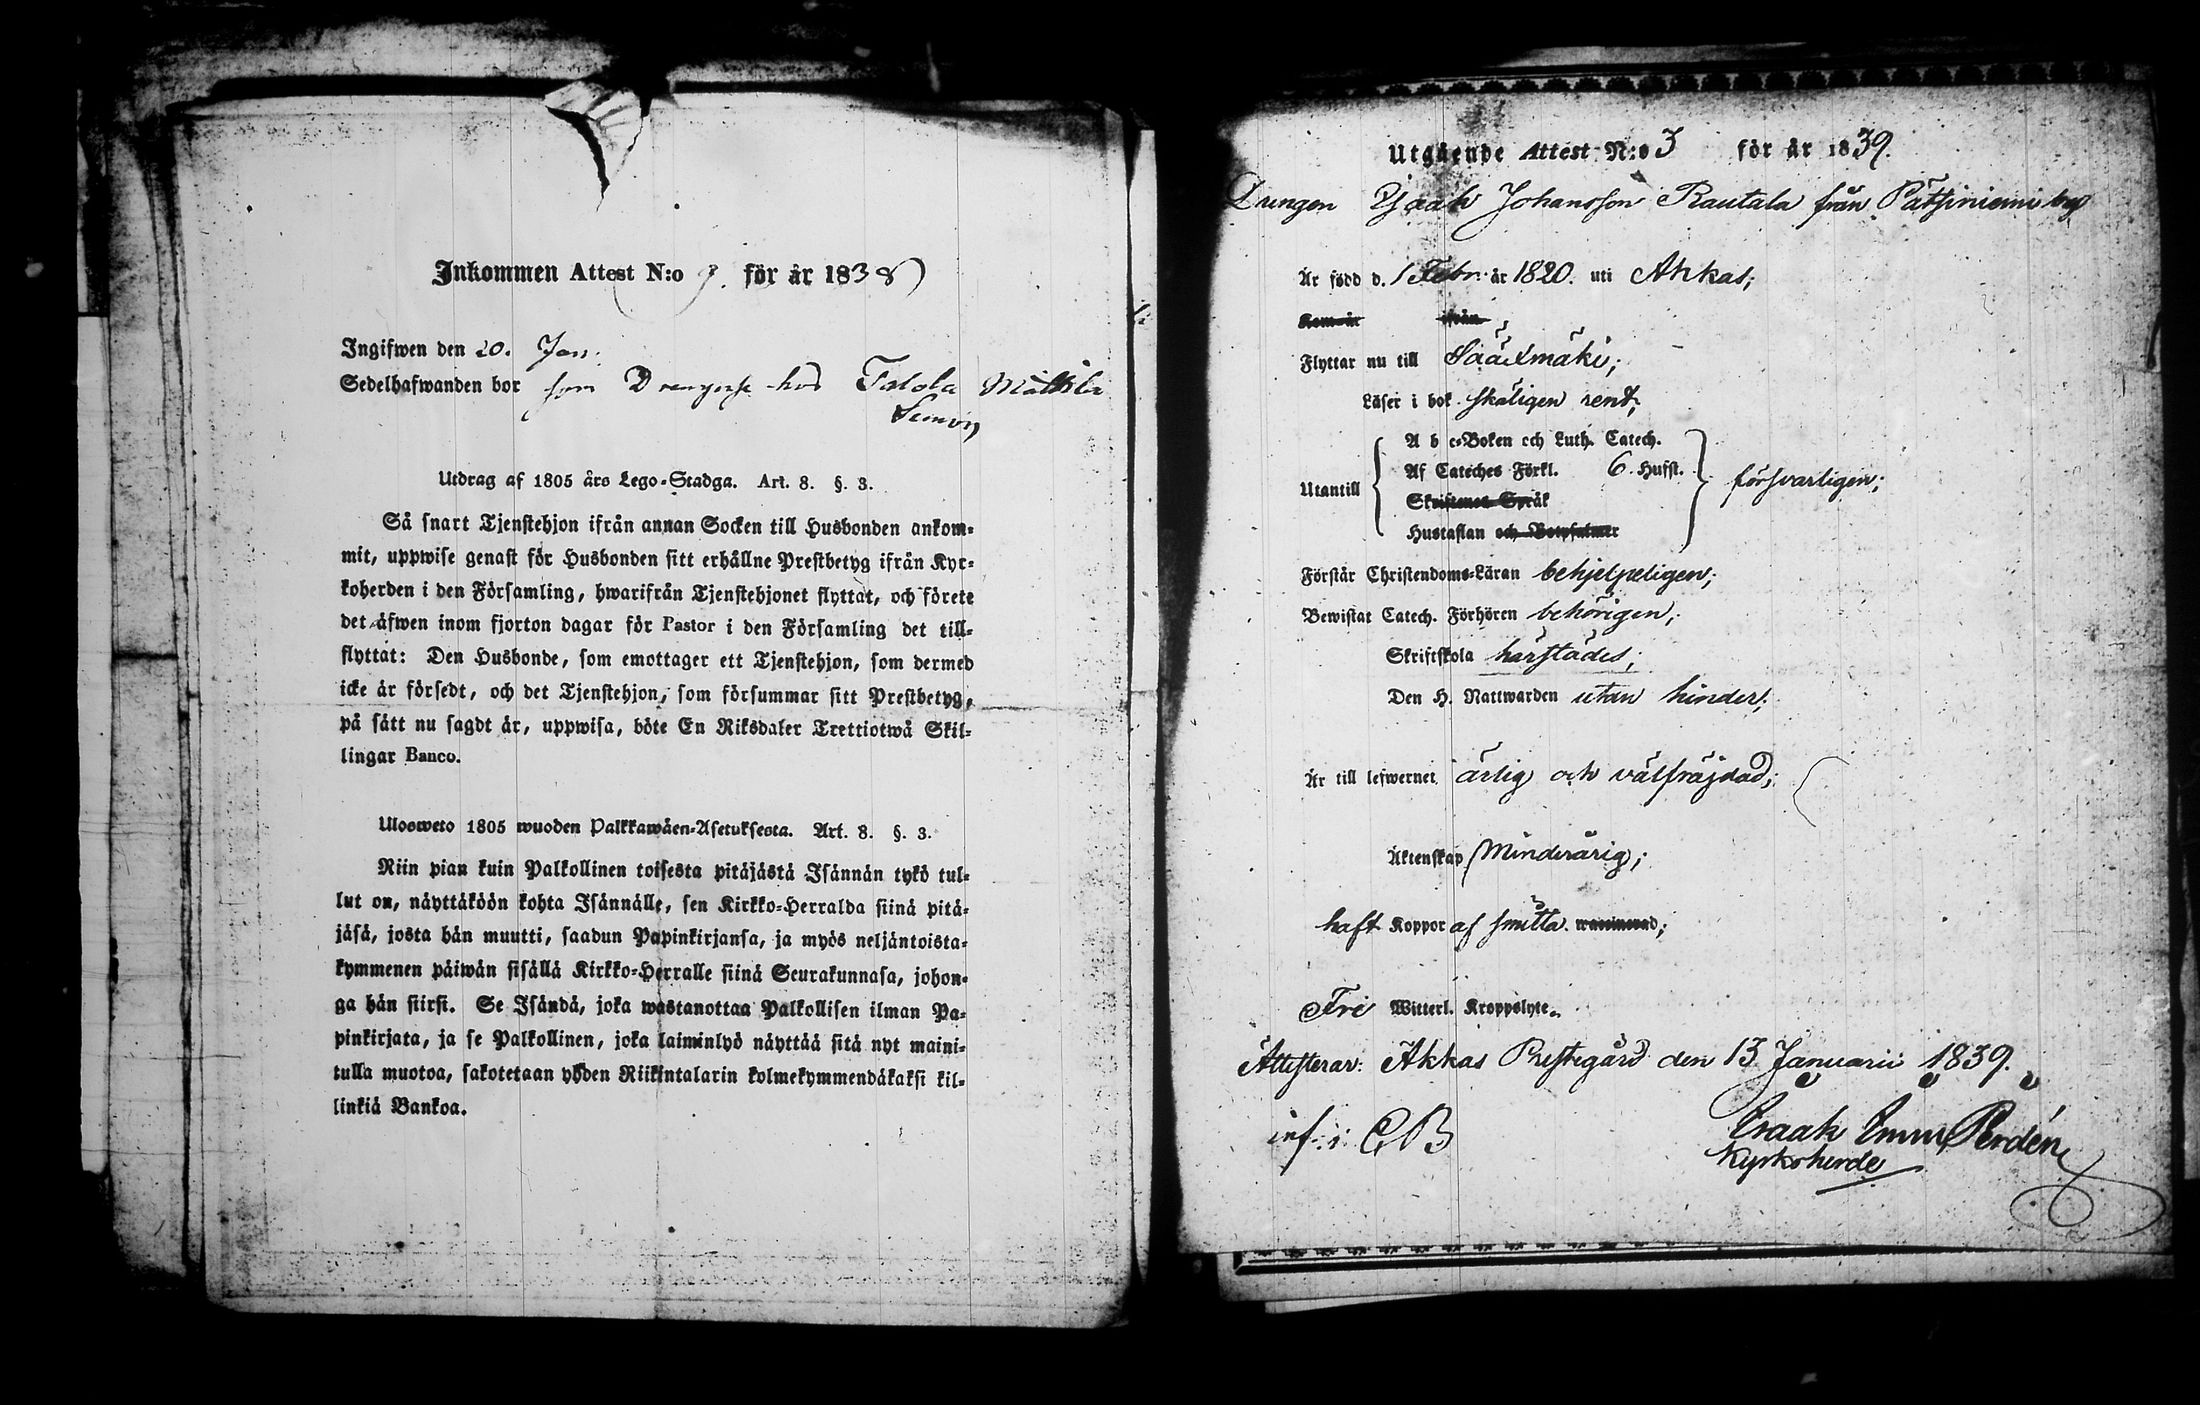 Inkommen Attest N:o 9. för år 1838
Ingifwen den 20. Jan.
Sedelhafwanden bor som Drengen hos Mattila
Utdrag af 1805 års Lego-Stadga. Art. 8. §. 3.
Så snart Tjenstehjon ifrån annan Socken till Husbonden ankom-
mit, uppwise genast för Husbonden sitt erhållne Prestbetyg ifrån Kyr-
koherden i den Församling, hwarifrån Tjenstehjonet flyttat, och förete
det äfwen inom fjorton dagar för Pastor i den Församling det till-
flyttat: Den Husbonde, som emottager ett Tjenstehjon, som dermed
icke är försedt, och det Tjenstehjon, som försummar sitt Prestbetyg,
på sätt nu sagdt är, uppwisa, böte En Riksdaler Trettiotwå Skil-
lingar Banco.
Ulosweto 1805 wuoden Palkkawäen-Asetuksesta. Art. 8. §. 3.
Niin pian kuin Palkollinen toisesta pitäjästä Isännän tykö tul-
lut on, näyttäköön kohta Isännälle, sen Kirkko-Herralda siinä pitä-
jäsä, josta hän muutti, saadun Papinkirjansa, ja myös neljäntoista-
kymmenen päiwän sisällä Kirkko-Herralle siinä Seurakunnasa, johon-
ga hän siirsi. Se Isändä, joka wastanottaa Palkollisen ilman Pa-
pinkirjata, ja se Palkollinen, joka laiminlyö näyttää sitä nyt maini-
tulla muotoa, sakotetaan yhden Riikintalarin kolmekymmendäkaksi kil-
linkiä Bankoa.
Utgående Attest N:o 3 för år 1839.
Drengen Isaak Johansson Rautala från Pätsiniemi by
Är född d. 1 Febr. år 1820. uti Akkas;
Kom år ifrån
Flyttar nu till Sääxmäki;
Läser i bok skäligen rent;
Utantill
A b c-Boken och Luth. Catech.
Af Cateches Förkl. 6. Hufst.
Skriftenes Språk
Hustaflan och Botpsalmer
försvarligen;
Förstår Christendoms-Läran behjelpeligen;
Bewistat Catech. Förhören behörigen;
Skriftskola härstädes;
Den H. Nattwarden utan hinder;
Är till lefwernet ärlig och välfräjdad;
Äktenskap Minderårig;
haft Koppor af smitta. waccinerad;
Fri Witterl. Kroppslyte.
Attesterar: Akkas Prestegård den 13 Januarii 1839.
inf. i CB
Isaak Eman. Perdén
Kyrkoherde